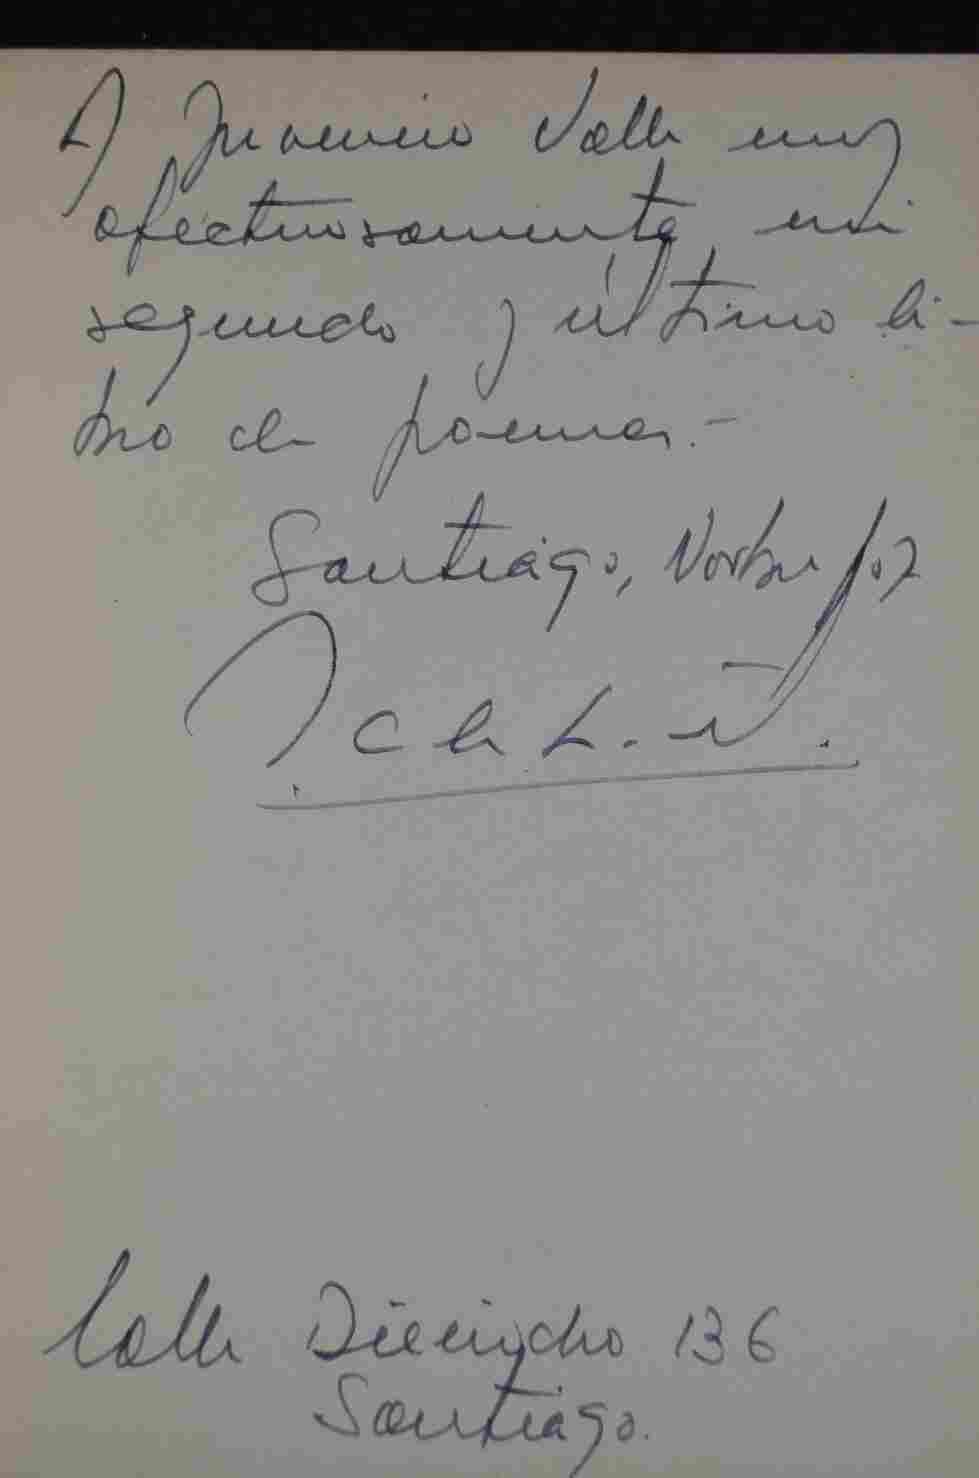 A Juvencio Valle muy
afectuosamente, mi
segundo y último li-
bro de poemas.-
Santiago, Novbre
Calle Dieciocho 136
Santiago.